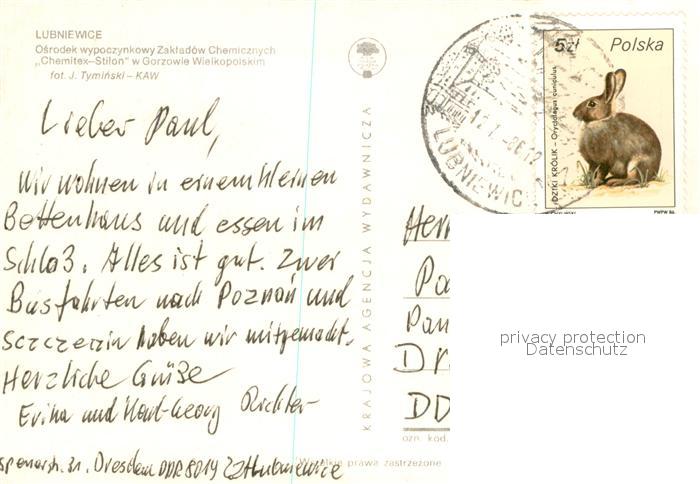 LUBNIEWICE
Ośrodek wypoczynkowy Zakładów Chemicznych
„Chemitex–Stilon” w Gorzowie Wielkopolskim
fot. J. Tymiński – KAW
Lieber Paul,
Wir wohnen in einem kleinen
Bettenhaus und essen im
Schloß. Alles ist gut. Zwei
Busfahrten nach Poznań und
Szczezin haben wir mitgemacht.
Herzliche Grüße
Erika und Karl-Georg Richter
str. 31, Dresden DDR 8019
KRAJOWA AGENCJA WYDAWNICZA
LUBNIEWICE
5 zł Polska
DZIKI KRÓLIK – Oryctolagus cuniculus
PWPW 86
Her
Pa
Pan
Dr
DD
privacy protection
Datenschutz
ozn. kod.
Wszelkie prawa zastrzeżone